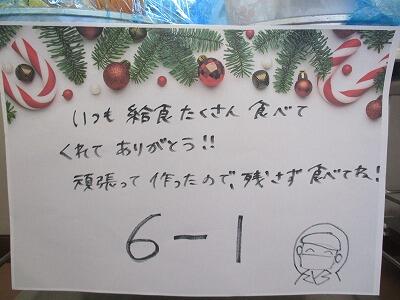 いつも給食たくさん食べて
くれてありがとう!!
頑張って作ったので、残さず食べてね!
6-1